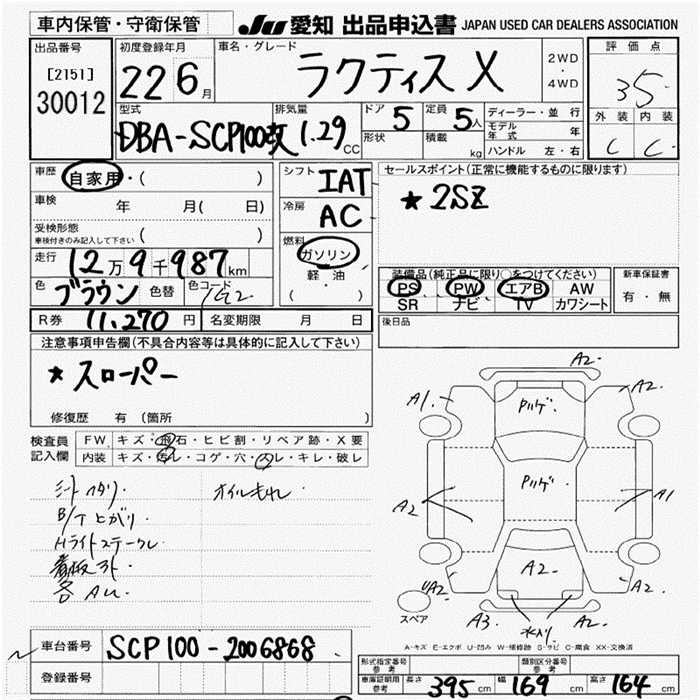 車内保管・守衛保管
JU 愛知 出品申込書 JAPAN USED CAR DEALERS ASSOCIATION
出品番号
[2151]
30012
初度登録年月
22 6月
車名・グレード
ラクティス X
2WD
・
4WD
評価点
3.5
外装 内装
C C
型式
DBA-SCP100改
排気量
1.29 CC
ドア 5
形状
定員 5人
積載 kg
ディーラー・並行
モデル年式 年
ハンドル 左・右
車歴 自家用・( )
車検 年 月( 日)
受検形態
車検付きのみ記入して下さい ( )
走行 12万9千987km
色 ブラウン 色替 色コード
R券 11,270円 名変期限 月 日
シフト IAT
冷房 AC
燃料
ガソリン
軽・油
( )
セールスポイント(正常に機能するものに限ります)
★ 2SZ
装備品(純正品に限り○をつけてください)
PS PW エアB AW
SR ナビ TV カワシート
新車保証書
有・無
後日品
注意事項申告欄(不具合内容等は具体的に記入して下さい)
★ スローパー
修復歴 有 (箇所 )
検査員
記入欄
FW キズ・飛石・ヒビ割・リペア跡・X要
内装 キズ・汚レ・コゲ・穴・スレ・キレ・破レ
シートヘタリ・ オイルもれ
B/T とがり・
Hライトステークレ
看板ヌト・
各AU.
A2-
A1. A2-
Pルゲ
Pルゲ
A2 A1
A2-
A2- A2-
A3- A2-
スペア
A-キズ E-エクボ U-凹み W-補修跡 S-サビ C-腐食 XX-交換済
車台番号 SCP100-2006868
登録番号
形式指定番号 参考 類別区分番号 参考
車庫証明用 参考 長さ 395cm 幅 169cm 高さ 164cm